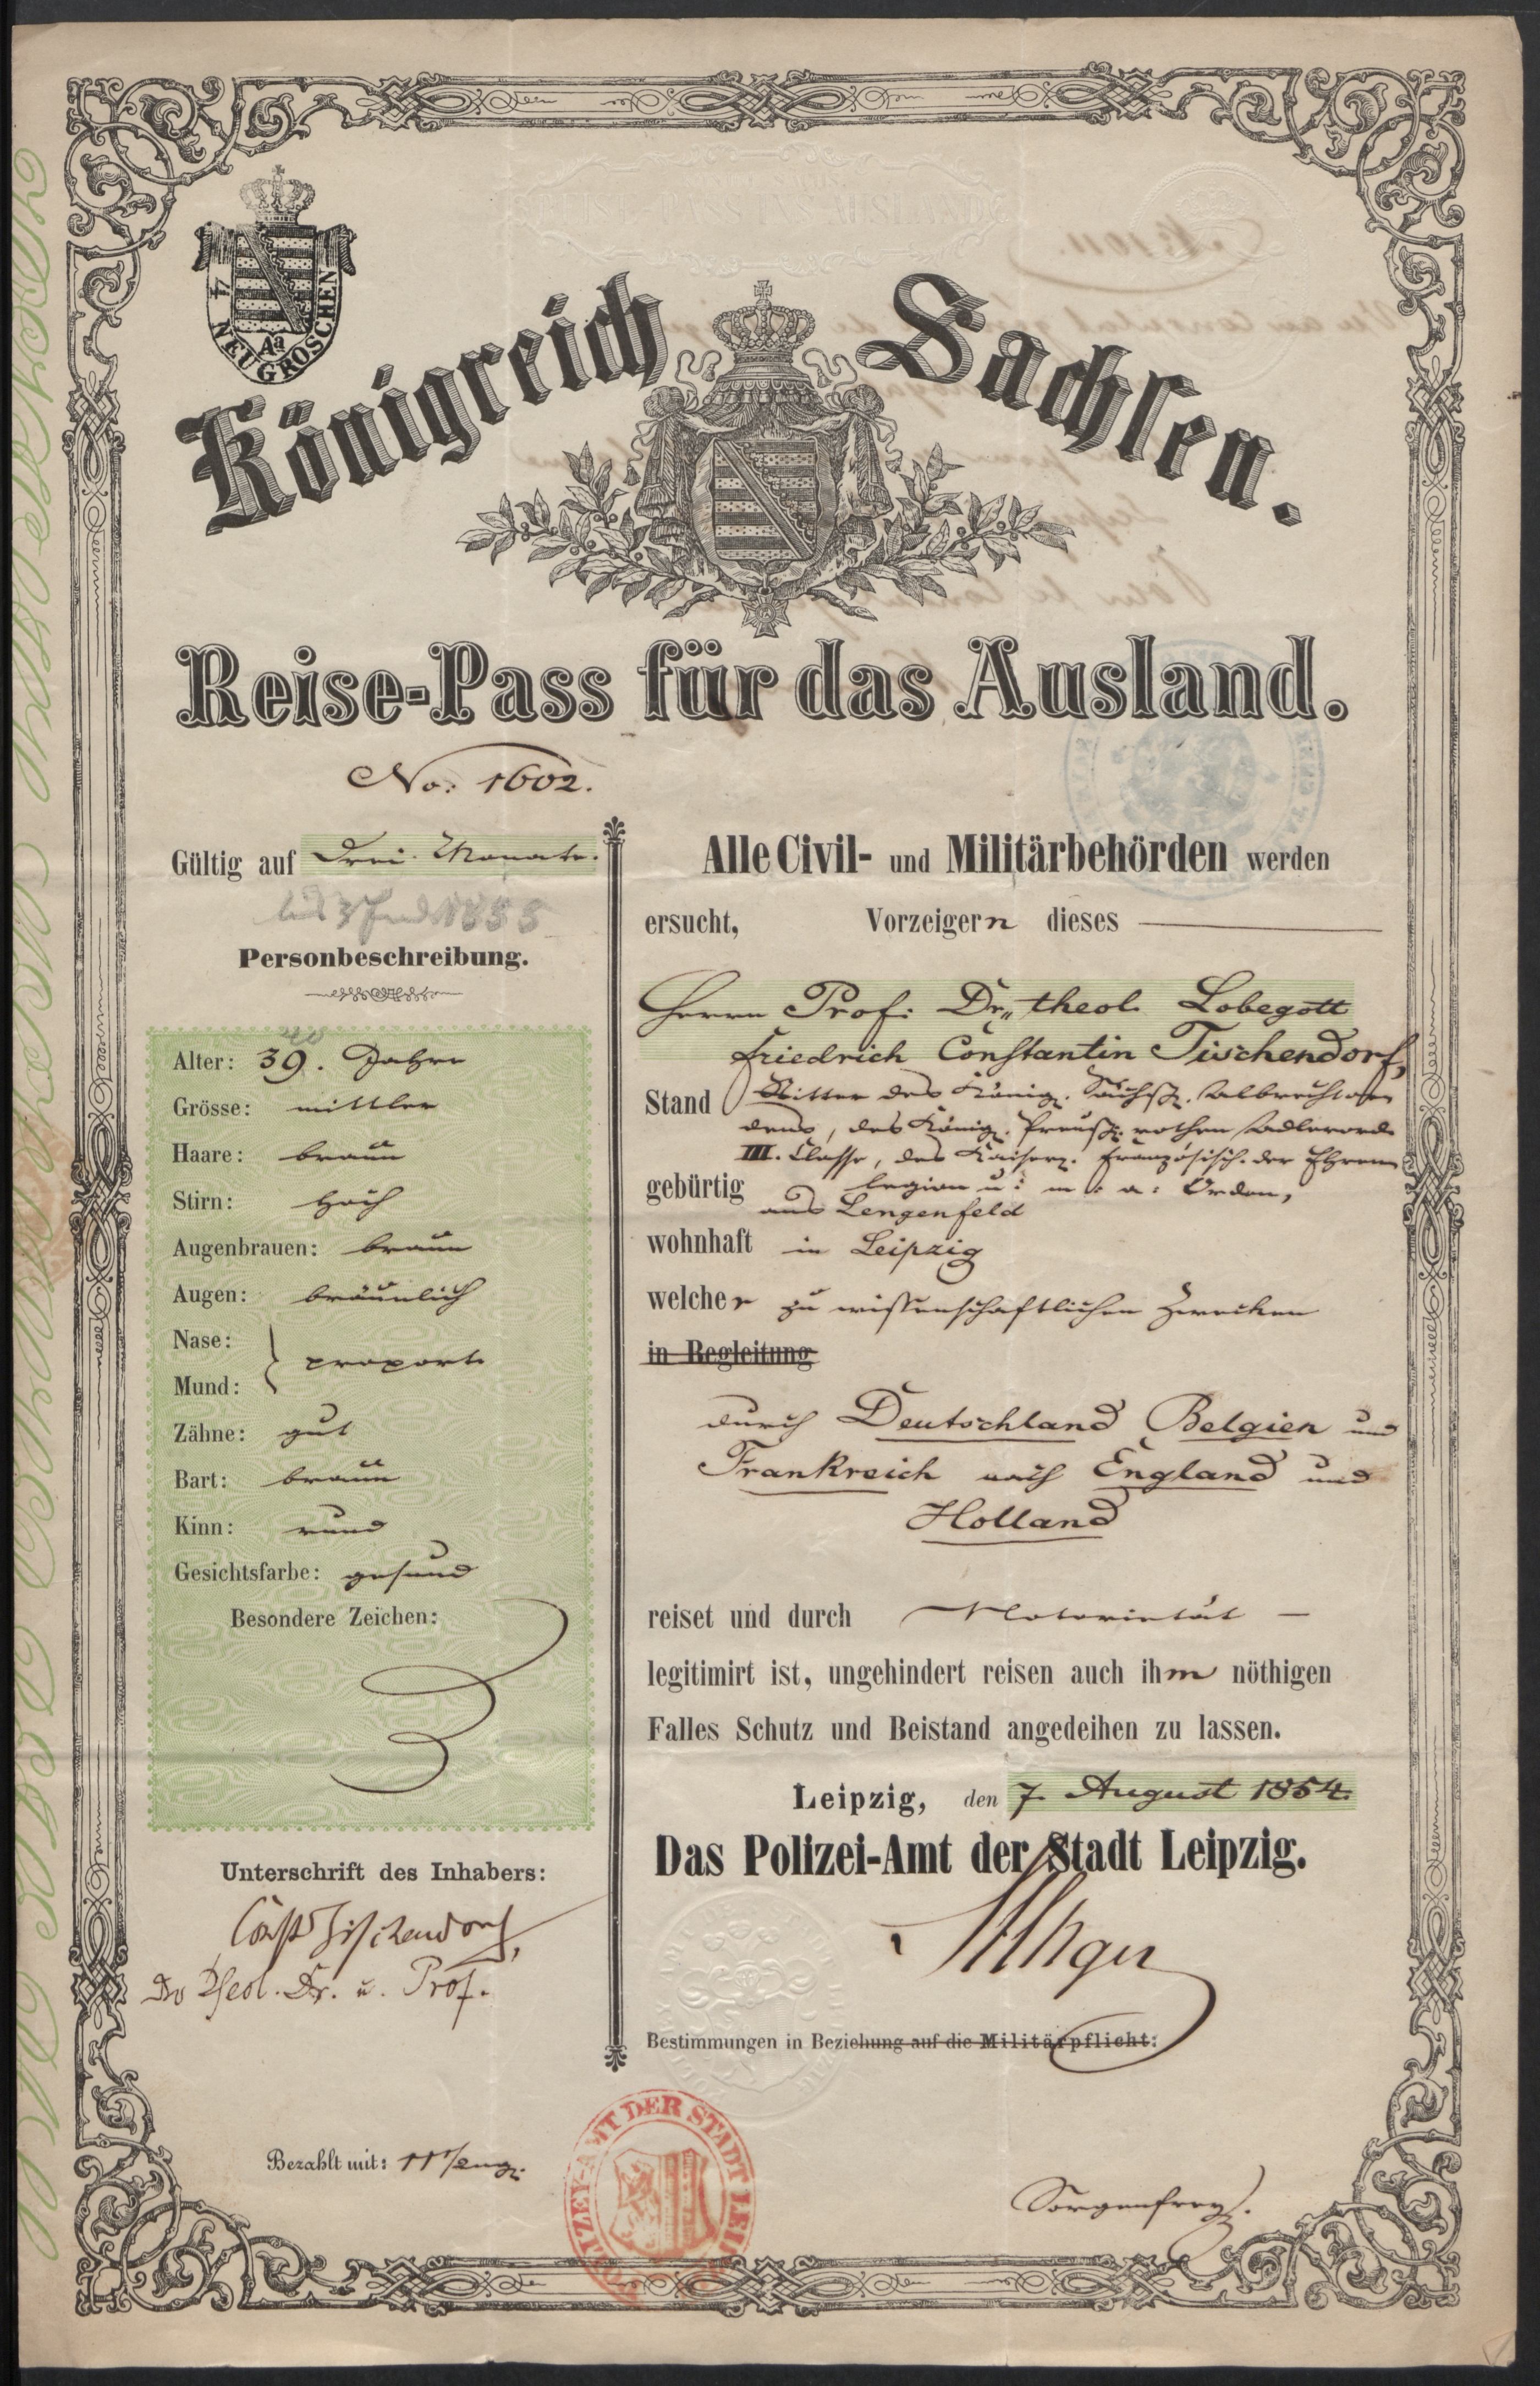 4 NEUGROSCHEN
Aa
Königreich Sachsen.
Reise-Pass für das Ausland.
No: 1602.
Gültig auf Drei Monate.
1855
Personbeschreibung.
Alter: 39. Jahre
40
Grösse: mittler
Haare: braun
Stirn: hoch
Augenbrauen: braun
Augen: bräunlich
Nase:
Mund: } proport.
Zähne: gut
Bart: braun
Kinn: rund
Gesichtsfarbe: gesund
Besondere Zeichen:
Unterschrift des Inhabers:
Const Tischendorf,
Theol. Dr. u. Prof.
Bezahlt mit: 11
Alle Civil- und Militärbehörden werden
ersucht, Vorzeigern dieses
Herrn Prof: Dr. theol. Lobegott
Friedrich Constantin Tischendorf,
Stand Ritter des Königl. Sächß. Albrechtsor
dens, des Königl. Preuß. rothen Adlerord.
III. Classe, des Kaiserl. Französisch. der Ehren
legion u: m: a: Orden,
gebürtig aus Lengenfeld
wohnhaft in Leipzig
welcher zu wissenschaftlichen Zwecken
in Begleitung
durch Deutschland Belgien und
Frankreich nach England und
Holland
reiset und durch Notorietät —
legitimirt ist, ungehindert reisen auch ihm nöthigen
Falles Schutz und Beistand angedeihen zu lassen.
Leipzig, den 7. August 1854.
Das Polizei-Amt der Stadt Leipzig.
Bestimmungen in Beziehung auf die Militärpflicht:
POLIZEY-AMT DER STADT LEIPZIG
Sorgenfrey.